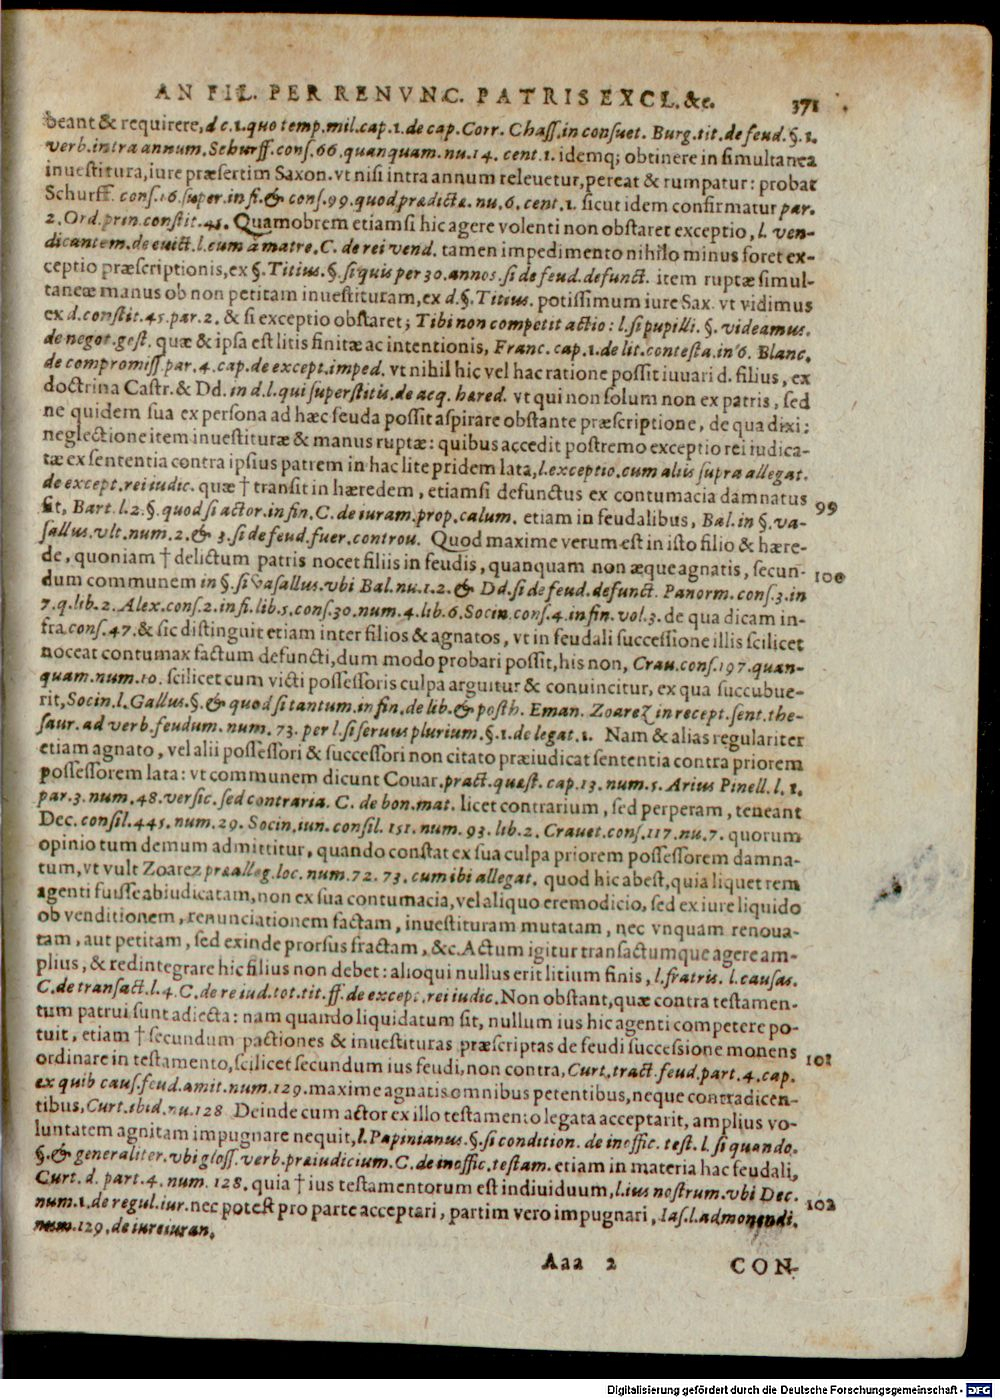 AN FIL. PER RENVNC. PATRIS EXCL. &c. 371
beant & requirere, d c.1. quo temp. mil. cap. 1. de cap. Corr. Chass. in consuet. Burg. tit. de feud. §. 1.
verb. intra annum. Schurff. cons. 66. quanquam. nu. 14. cent. 1. idemq; obtinere in simultanea
inuestitura, iure præsertim Saxon. vt nisi intra annum releuetur, pereat & rumpatur: probat
Schurff. cons. 16. super. in fi. & cons. 99. quod prædicta. nu. 6. cent. 1. sicut idem confirmatur par.
2. Ord. prin. constit. 45. Quamobrem etiamsi hic agere volenti non obstaret exceptio, l. ven-
dicantem. de euict. l. cum à matre. C. de rei vend. tamen impedimento nihilo minus foret ex-
ceptio præscriptionis, ex §. Titius. §. si quis per 30. annos. si de feud. defunct. item ruptæ simul-
taneæ manus ob non petitam inuestituram, ex d. §. Titius. potissimum iure Sax. vt vidimus
ex d. constit. 45. par. 2. & si exceptio obstaret; Tibi non competit actio: l. si pupilli. §. videamus.
de negot. gest. quæ & ipsa est litis finitæ ac intentionis, Franc. cap. 1. de lit. contesta. in 6. Blanc.
de compromiss. par. 4. cap. de except. imped. vt nihil hic vel hac ratione possit iuuari d. filius, ex
doctrina Castr. & Dd. in d. l. qui superstitis. de acq. hæred. vt qui non solum non ex patris, sed
ne quidem sua ex persona ad hæc feuda possit aspirare obstante præscriptione, de qua dixi:
neglectione item inuestituræ & manus ruptæ: quibus accedit postremo exceptio rei iudica-
tæ ex sententia contra ipsius patrem in hac lite pridem lata, l. exceptio. cum aliis supra allegat.
de except. rei iudic. quæ † transit in hæredem, etiamsi defunctus ex contumacia damnatus
sit, Bart. l. 2. §. quod si actor. in fin. C. de iuram. prop. calum. etiam in feudalibus, Bal. in §. va- 99
sallus. vlt. num. 2. & 3. si de feud. fuer. controu. Quod maxime verum est in isto filio & hære-
de, quoniam † delictum patris nocet filiis in feudis, quanquam non æque agnatis, secun- 100
dum communem in §. si vasallus. vbi Bal. nu. 1. 2. & Dd. si de feud. defunct. Panorm. cons. 3. in
7. q. lib. 2. Alex. cons. 2. in fi. lib. 5. cons. 30. num. 4. lib. 6. Socin. cons. 4. in fin. vol. 3. de qua dicam in-
fra cons. 47. & sic distinguit etiam inter filios & agnatos, vt in feudali successione illis scilicet
noceat contumax factum defuncti, dum modo probari possit, his non, Crau. cons. 197. quan-
quam. num. 10. scilicet cum victi possessoris culpa arguitur & conuincitur, ex qua succubue-
rit, Socin. l. Gallus. §. & quod si tantum. in fin. de lib. & posth. Eman. Zoarez in recept. sent. the-
saur. ad verb. feudum. num. 73. per l. si seruus plurium. §. 1. de legat. 1. Nam & alias regulariter
etiam agnato, vel alii possessori & successori non citato præiudicat sententia contra priorem
possessorem lata: vt communem dicunt Couar. pract. quæst. cap. 13. num. 5. Arius Pinell. l. 1.
par. 3. num. 48. versic. sed contraria. C. de bon. mat. licet contrarium, sed perperam, teneant
Dec. consil. 445. num. 29. Socin. iun. consil. 151. num. 93. lib. 2. Crauet. cons. 117. nu. 7. quorum
opinio tum demum admittitur, quando constat ex sua culpa priorem possessorem damna-
tum, vt vult Zoarez præalleg. loc. num. 72. 73. cum ibi allegat. quod hic abest, quia liquet rem
agenti fuisse abiudicatam, non ex sua contumacia, vel aliquo eremodicio, sed ex iure liquido
ob venditionem, renunciationem factam, inuestituram mutatam, nec vnquam renoua-
tam, aut petitam, sed exinde prorsus fractam, &c. Actum igitur transactumque agere am-
plius, & redintegrare hic filius non debet: alioqui nullus erit litium finis, l. fratris. l. causas.
C. de transact. l. 4. C. de re iud. tot. tit. ff. de except. rei iudic. Non obstant, quæ contra testamen-
tum patrui sunt adiecta: nam quando liquidatum sit, nullum ius hic agenti competere po-
tuit, etiam † secundum pactiones & inuestituras præscriptas de feudi successione monens 101
ordinare in testamento, scilicet secundum ius feudi, non contra, Curt. tract. feud. part. 4. cap.
ex quib caus. feud. amit. num. 129. maxime agnatis omnibus petentibus, neque contradicen-
tibus, Curt. ibid. nu. 128 Deinde cum actor ex illo testamento legata acceptarit, amplius vo-
luntatem agnitam impugnare nequit, l. Papinianus. §. si condition. de inoffic. test. l. si quando.
§. & generaliter. vbi gloss. verb. præiudicium. C. de inoffic. testam. etiam in materia hac feudali,
Curt. d. part. 4. num. 128. quia † ius testamentorum est indiuiduum, l. ius nostrum. vbi Dec. 102
num. 1. de regul. iur. nec potest pro parte acceptari, partim vero impugnari, Ias. l. admonendi.
num. 129. de iureiuran.
Aaa 2 CON-
Digitalisierung gefördert durch die Deutsche Forschungsgemeinschaft - DFG